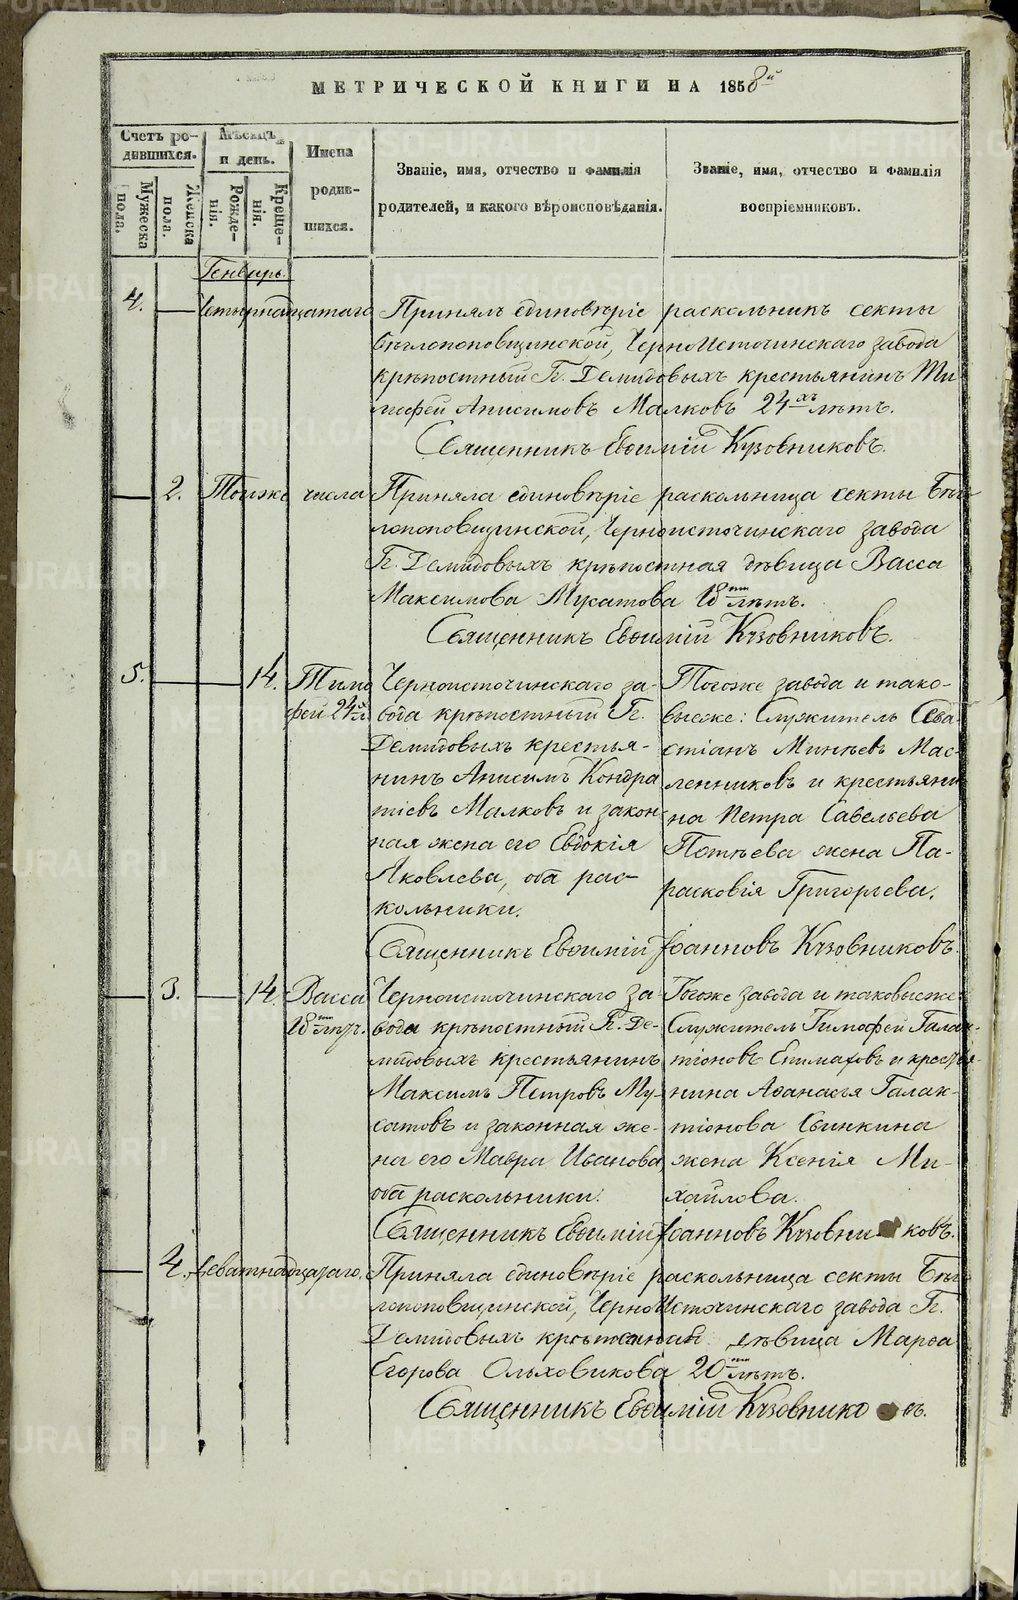 МЕТРИЧЕСКОЙ КНИГИ НА 1858й
Счетъ ро-
дившихся.
Мужеска
пола.
Женска
пола.
Мѣсяцъ
и день.
Рожде-
нія.
Креще-
нія.
Имена
родив-
шихся.
Званіе, имя, отчество и фамилія
родителей, и какого вѣроисповѣданія.
Званіе, имя, отчество и фамилія
воспріемниковъ.
Генварь.
4. Четырнадцатаго Принялъ единовѣріе раскольникъ секты
бѣглопоповщинской, ЧерноИсточинскаго завода
крѣпостный Гг. Демидовыхъ крестьянинъ Ти-
мофей Анисимовъ Малковъ 24хъ лѣтъ.
Священникъ Евѳимій Кузовниковъ.
2. Тогоже числа Приняла единовѣріе раскольница секты Бѣг-
лопоповщинской, Черноисточинскаго завода
Гг. Демидовыхъ крѣпостная дѣвица Васса
Максимова Мусатова 18ти лѣтъ.
Священникъ Евѳимій Кузовниковъ.
5. 14. Тимо
фей 24х л.
Черноисточинскаго за-
вода крѣпостный Гг.
Демидовыхъ крестья-
нинъ Анисимъ Кондра
тіевъ Малковъ и закон
ная жена его Евдокія
Яковлева, оба рас-
кольники.
Тогоже завода и тако-
выеже: Служитель Сева-
стіанъ Минѣевъ Мас-
ленниковъ и крестьяни
на Петра Савельева
Потѣева жена Па-
расковія Григорьева.
Священникъ Евѳимій Іоанновъ Кузовниковъ.
3. 14. Васса
18ти лѣт.
Черноисточинскаго за-
вода крѣпостный Гг. Де-
мидовыхъ крестьянинъ
Максимъ Петровъ Му-
сатовъ и законная же-
на его Мавра Иванова
оба раскольники.
Тогоже завода и таковыеже
Служитель Тимофей Галак-
тіоновъ Епимаховъ и крестья-
нина Аѳанасья Галак-
тіонова Свинкина
жена Ксенія Ми-
хайлова.
Священникъ Евѳимій Іоанновъ Кузовниковъ.
4. Девятнадцатаго. Приняла единовѣріе раскольница секты Бѣг-
лопоповщинской, ЧерноИсточинскаго завода Гг.
Демидовыхъ крѣпостная дѣвица Марѳа
Егорова Ольховикова 20ти лѣтъ.
Священникъ Евѳимій Кузовниковъ.
METRIKI.GASO-URAL.RU